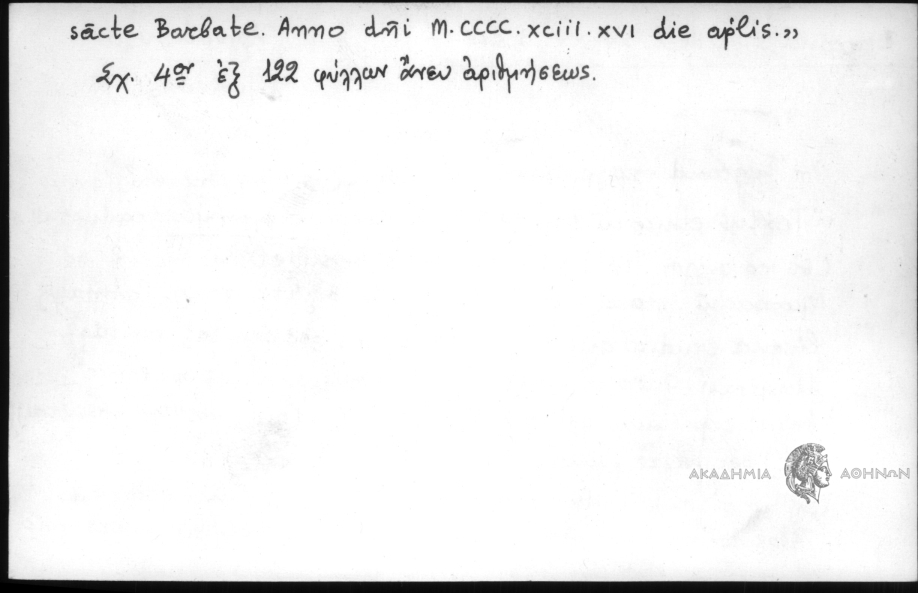 sācte Barbate. Anno dn̄i M.CCCC.xciii.xvi die ap̄lis.»
Σχ. 4ον ἐξ 122 φύλλων ἄνευ ἀριθμήσεως.
ΑΚΑΔΗΜΙΑ ΑΘΗΝΩΝ